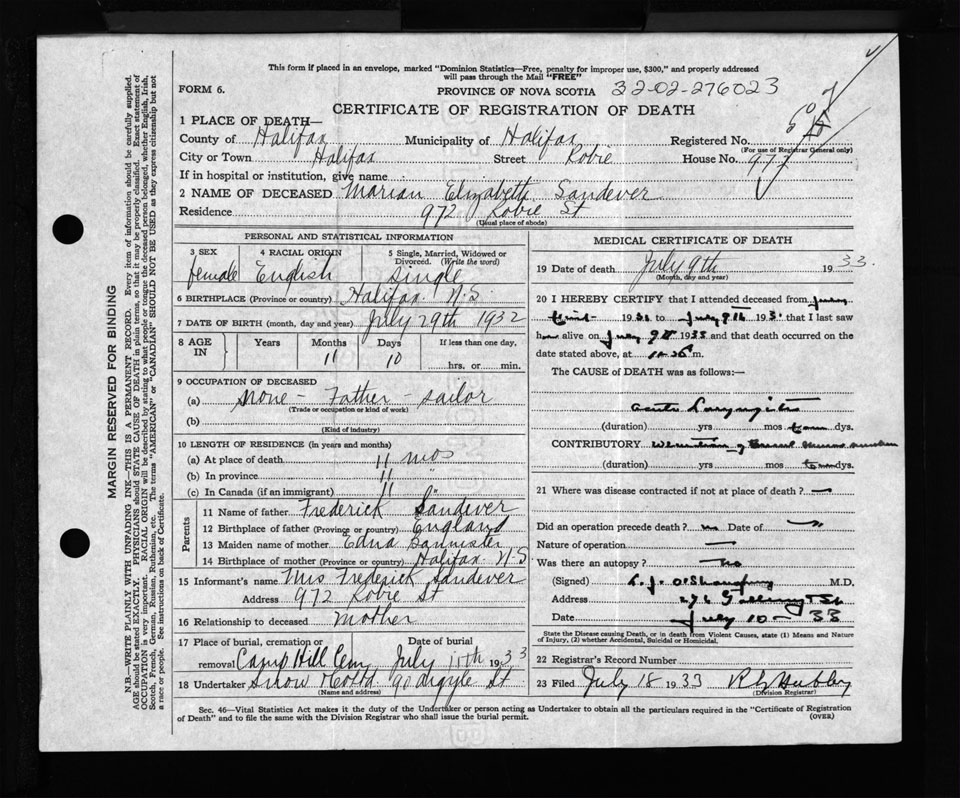 This form if placed in an envelope, marked "Dominion Statistics—Free, penalty for improper use, $300," and properly addressed
will pass through the Mail "FREE"
FORM 6.
PROVINCE OF NOVA SCOTIA 32-02-276023
CERTIFICATE OF REGISTRATION OF DEATH
1 PLACE OF DEATH—
County of Halifax Municipality of Halifax Registered No.
(For use of Registrar General only)
City or Town Halifax Street Robie House No. 972
If in hospital or institution, give name
2 NAME OF DECEASED Marian Elizabeth Sandever
Residence 972 Robie St
(Usual place of abode)
PERSONAL AND STATISTICAL INFORMATION
3 SEX 4 RACIAL ORIGIN 5 Single, Married, Widowed or Divorced. (Write the word)
female English single
6 BIRTHPLACE (Province or country) Halifax N.S.
7 DATE OF BIRTH (month, day and year) July 29th 1932
8 AGE IN Years Months Days If less than one day,
11 10 hrs. or min.
9 OCCUPATION OF DECEASED
(a) none - Father - sailor
(Trade or occupation or kind of work)
(b)
(Kind of industry)
10 LENGTH OF RESIDENCE (in years and months)
(a) At place of death 11 mos
(b) In province 11 "
(c) In Canada (if an immigrant) 11 "
Parents
11 Name of father Frederick Sandever
12 Birthplace of father (Province or country) England
13 Maiden name of mother Edna Bannister
14 Birthplace of mother (Province or country) Halifax N.S
15 Informant's name Mrs Frederick Sandever
Address 972 Robie St
16 Relationship to deceased Mother
17 Place of burial, cremation or removal Camp Hill Cem Date of burial July 11th 1933
18 Undertaker Snow & Co Ltd 90 Argyle St
(Name and address)
MEDICAL CERTIFICATE OF DEATH
19 Date of death July 9th 1933.
(Month, day and year)
20 I HEREBY CERTIFY that I attended deceased from July
193 to July 9th 193 that I last saw
h alive on July 9th 1933 and that death occurred on the
date stated above, at m.
The CAUSE of DEATH was as follows:—
acute Laryngitis
(duration) yrs mos dys.
CONTRIBUTORY
(duration) yrs mos dys.
21 Where was disease contracted if not at place of death? —
Did an operation precede death? no Date of "
Nature of operation —
Was there an autopsy? no
(Signed) M.D.
Address St
Date July 10 - 33
State the Disease causing Death, or in death from Violent Causes, state (1) Means and Nature
of Injury, (2) whether Accidental, Suicidal or Homicidal.
22 Registrar's Record Number
23 Filed July 18 1933
(Division Registrar)
Sec. 46—Vital Statistics Act makes it the duty of the Undertaker or person acting as Undertaker to obtain all the particulars required in the "Certificate of Registration
of Death" and to file the same with the Division Registrar who shall issue the burial permit. (OVER)
MARGIN RESERVED FOR BINDING
N.B.—WRITE PLAINLY WITH UNFADING INK—THIS IS A PERMANENT RECORD. Every item of information should be carefully supplied.
AGE should be stated EXACTLY. PHYSICIANS should STATE CAUSE OF DEATH in plain terms, so that it may be properly classified. Exact statement of
OCCUPATION is very important. RACIAL ORIGIN will be described by stating to what people or tongue the deceased person belonged, whether English, Irish,
Scotch, French, German, Russian, Ruthenian, etc. The terms "AMERICAN" or "CANADIAN" SHOULD NOT BE USED as they express citizenship but not
a race or people. See instructions on back of Certificate.